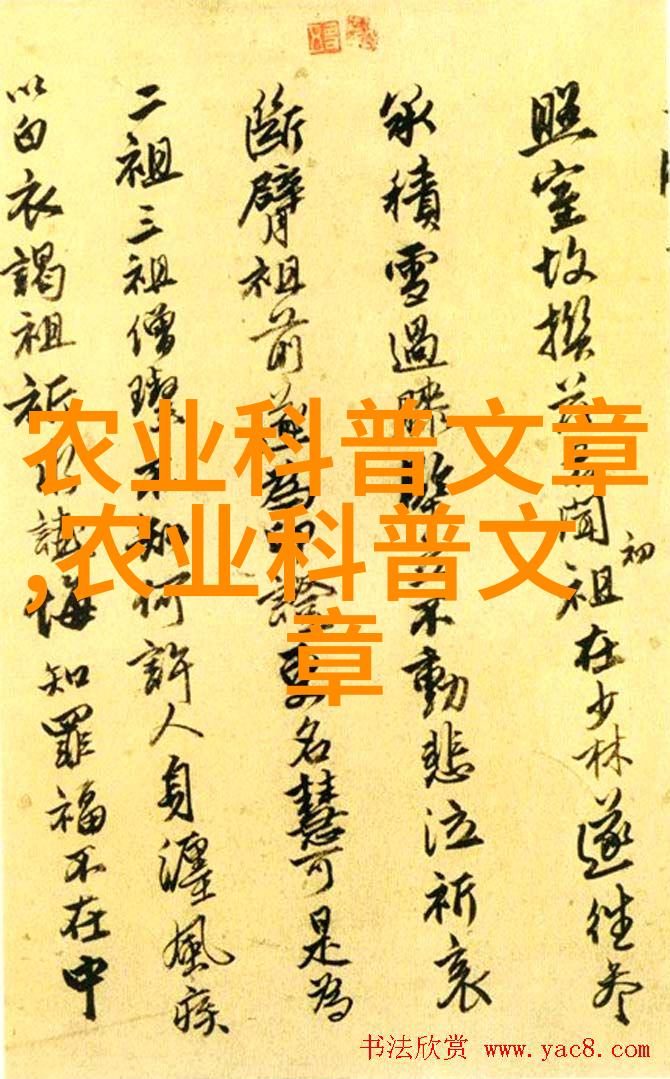 照室故撰聞初祖在少林遂往參
承積雪過膝不動悲泣祈哀
斷臂祖前為證名慧可是為
二祖三祖僧璨不知何許人身纏風疾
以白衣謁祖祈悔知罪福不在中
农业科普文章
,农业科普文
章
书法欣赏 www.yac8.com